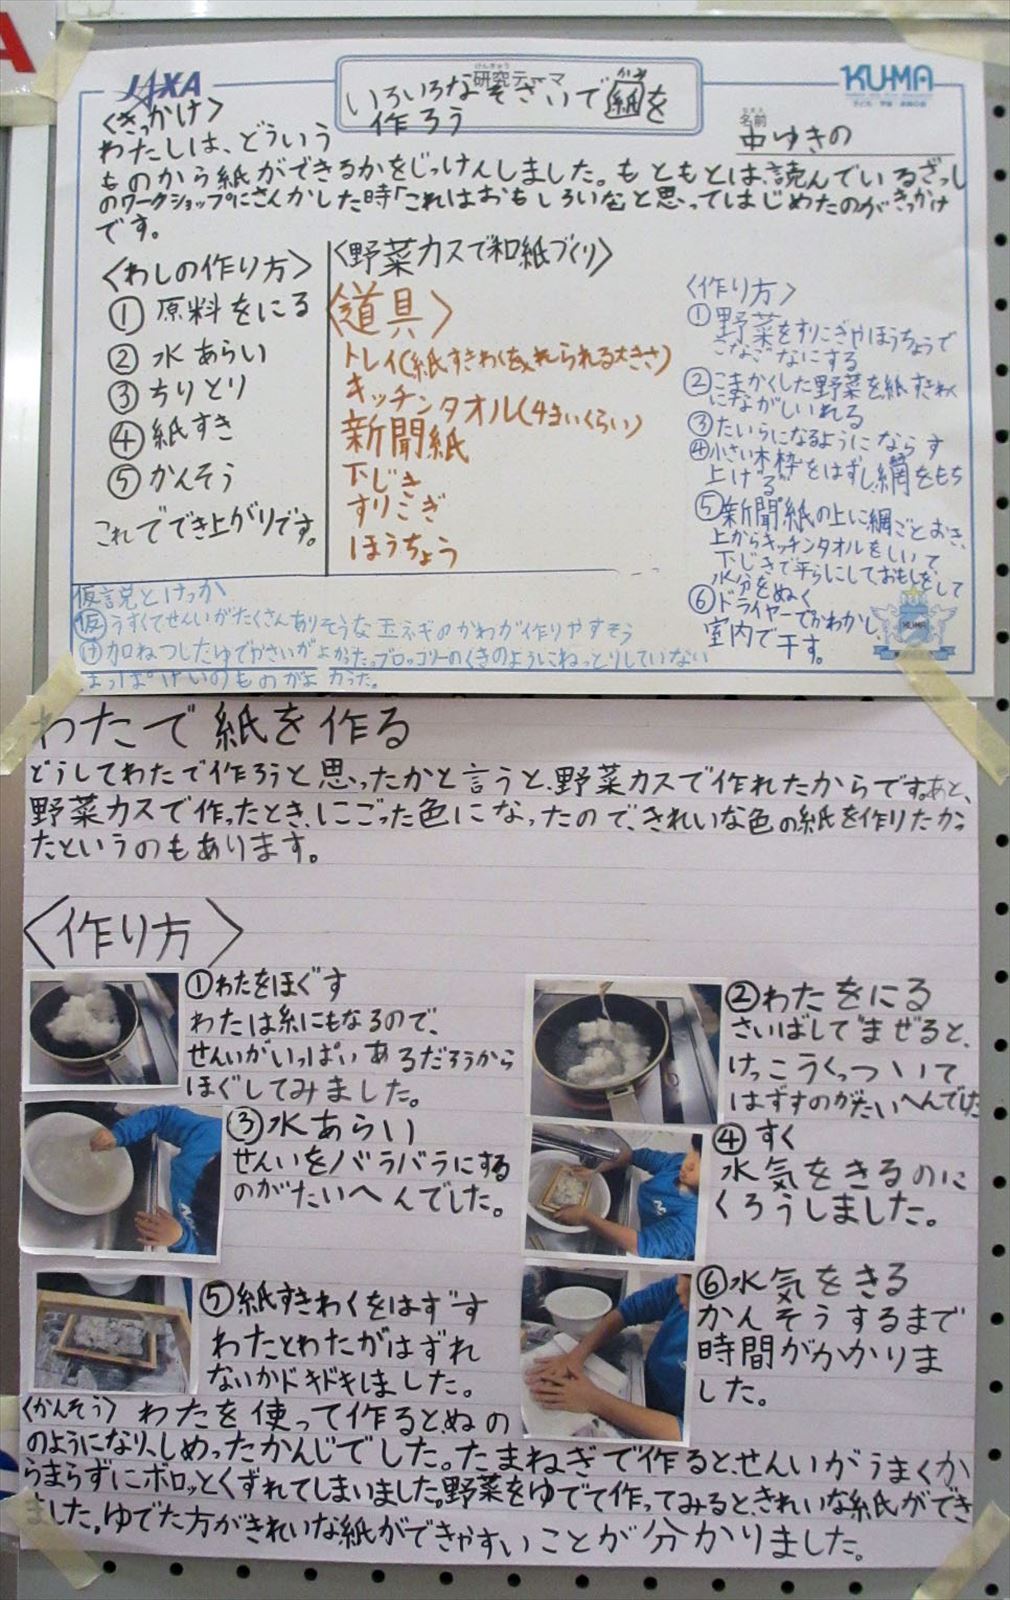 JAXA
けんきゅう
研究テーマ
いろいろなそざいで紙を
作ろう
KU-MA
名前
中ゆきの
〈きっかけ〉
わたしは、どういう
ものから紙ができるかをじっけんしました。もともとは、読んでいるざっし
のワークショップにさんかした時「これはおもしろいな」と思ってはじめたのがきっかけ
です。
〈わしの作り方〉
①原料をにる
②水あらい
③ちりとり
④紙すき
⑤かんそう
これででき上がりです。
〈野菜カスで和紙づくり〉
〈道具〉
トレイ(紙すきわくを入れられる大きさ)
キッチンタオル(4まいくらい)
新聞紙
下じき
すりこぎ
ほうちょう
〈作り方〉
①野菜をすりこぎやほうちょうで
こなごなにする
②こまかくした野菜を紙すきわく
にながしいれる
③たいらになるようにならす
④小さい木枠をはずし網をもち
上げる
⑤新聞紙の上に網ごとおき、
上からキッチンタオルをしいて
下じきで平らにしておもしをして
水分をぬく
⑥ドライヤーでかわかし、
室内で干す。
KUMA
仮説とけっか
仮 うすくてせんいがたくさんありそうな玉ネギのかわが作りやすそう
け 加ねつしたゆでやさいがよかった。ブロッコリーのくきのようにねっとりしていない
はっぱけいのものがよかった。
わたで紙を作る
どうしてわたで作ろうと思ったかと言うと、野菜カスで作れたからです。あと、
野菜カスで作ったとき、にごった色になったので、きれいな色の紙を作りたかっ
たというのもあります。
〈作り方〉
①わたをほぐす
わたは糸にもなるので、
せんいがいっぱいあるだろうから
ほぐしてみました。
②わたをにる
さいばしでまぜると、
けっこうくっついて
はずすのがたいへんでした
③水あらい
せんいをバラバラにする
のがたいへんでした。
④すく
水気をきるのに
くろうしました。
⑤紙すきわくをはずす
わたとわたがはずれ
ないかドキドキしました。
⑥水気をきる
かんそうするまで
時間がかかりま
した。
〈かんそう〉わたを使って作ると、ぬの
のようになり、しめったかんじでした。たまねぎで作ると、せんいがうまくか
らまらずにボロッとくずれてしまいました。野菜をゆでて作ってみると、きれいな紙ができ
ました。ゆでた方がきれいな紙ができやすいことが分かりました。